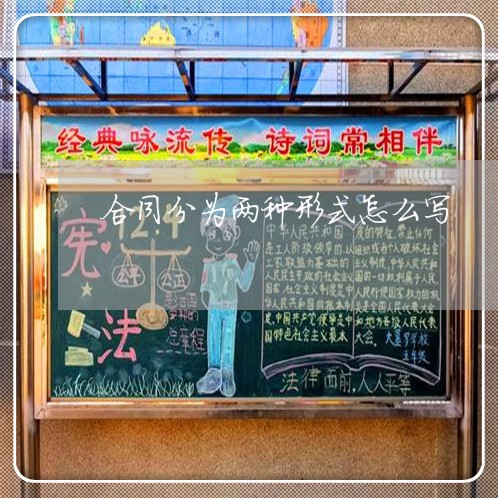 经典咏流传 诗词常相伴
合同分为两种形式怎么写
12.4
宪
法
公平
公正
总章程
中华人民共和国
是工人阶级领导的,以
工农联盟为基础的
人民民主专政的社会主义
国家,社会主义制度是中
华人民共和国的根本制
度,中国共产党领导是中
国特色社会主义最本
质的特征,禁止任何
组织或者个人破坏社会
主义制度,中华人民共和
国的一切权利属于人民,
人民行使国家权力的机
关是全国人民代表大会
和地方各级人民代表
大会。
五年级
法律面前,人人平等